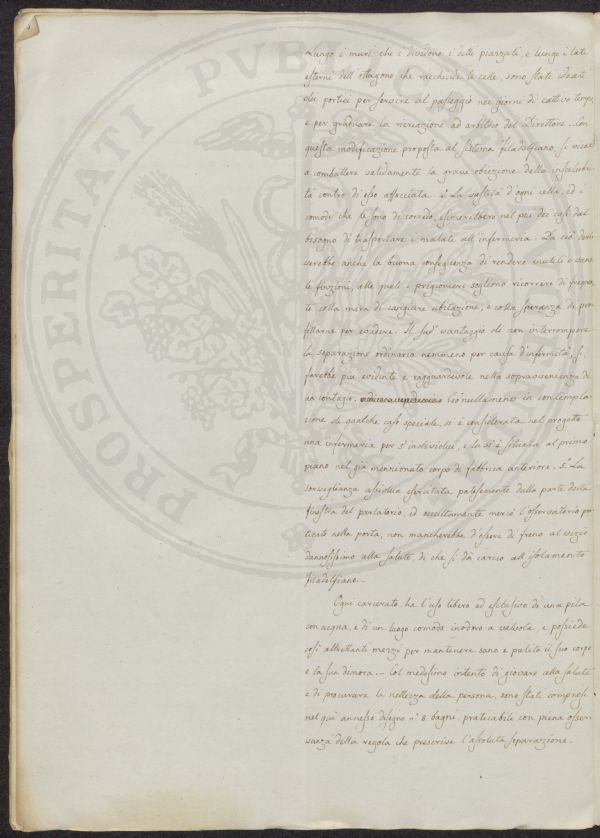 Lungo i muri che dividono i detti piazzali, e lungo i lati
esterni dell'ottagono che racchiude le celle, sono stati ideati
dei portici per servire al passeggio nei giorni di cattivo tempo,
e per graduare la ricreazione ad arbitrio del Direttore. Con
questa modificazione proposta al sistema Filadelfiano, si riesce
a combattere validamente la grave obiezione della insalubri-
tà contro di esso affacciata. La vastità d'ogni cella ed i
comodi che le sono di corredo, esimerebbero nel più dei casi dal
bisogno di trasportare i malati all'infermeria. Da ciò deri-
verebbe anche la buona conseguenza di rendere inutili e vane
le finzioni, alle quali i prigionieri sogliono ricorrere di frequen-
te colla mira di cangiare abitazione, e colla speranza di pro-
fittarne per evadere. Il sud.º vantaggio di non interrompere
la separazione ordinaria nemmeno per causa d'infermità, si
farebbe più evidente e ragguardevole nella sopravvenienza di
un contagio. Ciò nullameno in contempla-
zione di qualche caso speciale, si è considerata nel progetto
una infermeria per 5 individui, e la si è situata al primo
piano nel già menzionato corpo di fabbrica anteriore. 5.º La
sorveglianza assidua esercitata palesemente dalla parte della
finestra del parlatorio, ed occultamente mercè l'osservatorio pra-
ticato nella porta, non mancherebbe d'essere di freno al vizio
dannosissimo alla salute, di che si dà carico all'isolamento
Filadelfiano.
Ogni carcerato ha l'uso libero ed esclusivo di una pila
con acqua, e di un luogo comodo inodoro a valvola, e possiede
così altrettanti mezzi per mantenere sano e pulito il suo corpo
e la sua dimora. - Col medesimo intento di giovare alla salute
e di procurare la nettezza della persona, sono stati compresi
nel quì annesso disegno n.º 8 bagni, praticabili con piena osser-
vanza della regola che prescrive l'assoluta separazione.
PROSPERITATI PVBLICAE